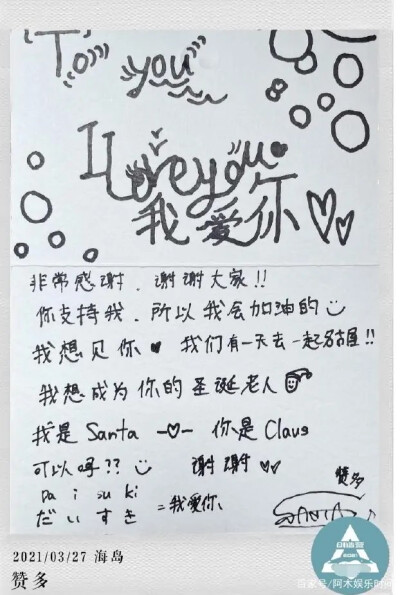 To you
I Love you
我爱你
非常感谢．谢谢大家!!
你支持我．所以我会加油的
我想见你 我们有一天去一起名古屋!!
我想成为你的圣诞老人
我是 Santa 你是 Claus
可以吗?? 谢谢
赞多
pa i su ki
だいすき = 我爱你
SANTA
2021/03/27 海岛
赞多
百家号/阿木娱乐时